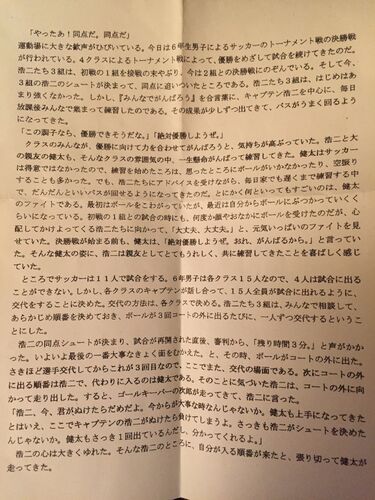 「やったあ！同点だ。同点だ」
運動場に大きな歓声がひびいている。今日は６年生男子によるサッカーのトーナメント戦の決勝戦
が行われている。４クラスによるトーナメント戦によって、優勝をめざして試合を続けてきたのだ。
浩二たち３組は、初戦の１組を接戦の末やぶり、今は２組との決勝戦にのぞんでいる。そして今、
３組の浩二のシュートが決まって、同点に追いついたところである。浩二たち３組は、はじめはあ
まり強くなかった。しかし、『みんなでがんばろう』を合言葉に、キャプテン浩二を中心に、毎日
放課後みんなで集まって練習したのである。その成果が少しずつ出てきて、パスがうまく回るよう
になってきた。
「この調子なら、優勝できそうだな。」「絶対優勝しようぜ。」
クラスのみんなが、優勝に向けて力を合わせてがんばろうと、気持ちが高ぶっていた。浩二と大
の親友の健太も、そんなクラスの雰囲気の中、一生懸命がんばって練習してきた。健太はサッカー
は得意ではなかったので、練習を始めたころは、思ったところにボールがいかなかったり、空振り
することも多かった。でも、浩二たちにアドバイスを受けながら、毎日家でも遅くまで練習する中
で、だんだんといいパスが回せるようになってきたのだ。とにかく何といってもすごいのは、健太
のファイトである。最初はボールをこわがっていたが、最近は自分からボールにぶつかっていくく
らいになっている。初戦の１組との試合の時にも、何度か顔やおなかにボールを受けたのだが、心
配してかけよってくる浩二たちに向かって、「大丈夫、大丈夫。」と、元気いっぱいのファイトを見
せていた。決勝戦が始まる前も、健太は、「絶対優勝しようぜ。おれ、がんばるから。」と言ってい
た。そんな健太の姿に、浩二は親友としてとてもうれしく、共に練習してきたことを喜ばしく感じ
ていた。
ところでサッカーは１１人で試合をする。６年男子は各クラス１５人なので、４人は試合に出る
ことができない。しかし、各クラスのキャプテンが話し合って、１５人全員が試合に出れるように、
交代をすることに決めた。交代の方法は、各クラスで決める。浩二たち３組は、みんなで相談して、
あらかじめ順番を決めておき、ボールが３回コートの外に出るたびに、一人ずつ交代するというこ
とにした。
浩二の同点シュートが決まり、試合が再開された直後、審判から、「残り時間３分。」と声がかか
った。いよいよ最後の一番大事なきょく面をむかえた、と、その時、ボールがコートの外に出た。
さきほど選手交代してからこれが３回目なので、ここでまた、交代の場面である。次にコートの外
に出る順番は浩二で、代わりに入るのは健太である。そのことに気づいた浩二は、コートの外に向
かって走り出した。すると、ゴールキーパーの次郎が走ってきて、浩二に言った。
「浩二、今、君がぬけたらだめだよ。今からが大事な時なんじゃないか。健太も上手になってきた
とはいえ、ここでキャプテンの浩二がぬけたら負けてしまうよ。さっきも浩二がシュートを決めた
んじゃないか。健太もさっき１回出ているんだし、分かってくれるよ。」
浩二の心は大きくゆれた。そんな浩二のところに、自分が入る順番が来たと、張り切って健太が
走ってきた。